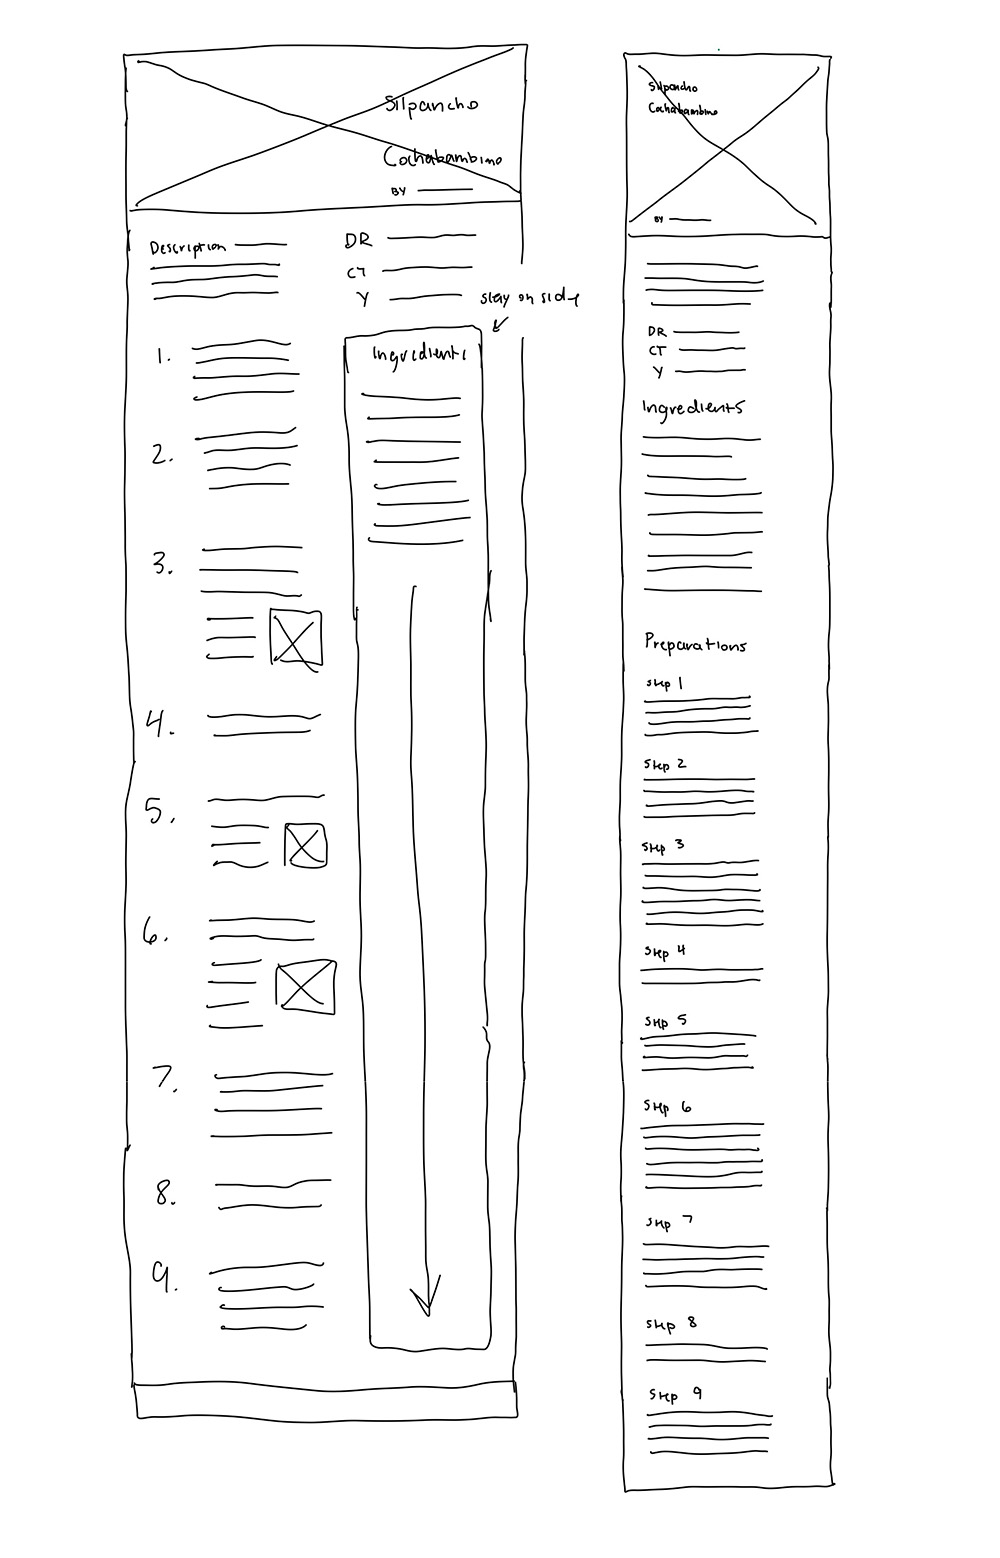 Silpancho
Cochabambino
BY
Description
DR
CT
Y
stay on side
Ingredients
1.
2.
3.
4.
5.
6.
7.
8.
9.
Silpancho
Cochabambino
BY
DR
CT
Y
Ingredients
Preparations
Step 1
Step 2
Step 3
Step 4
Step 5
Step 6
Step 7
Step 8
Step 9